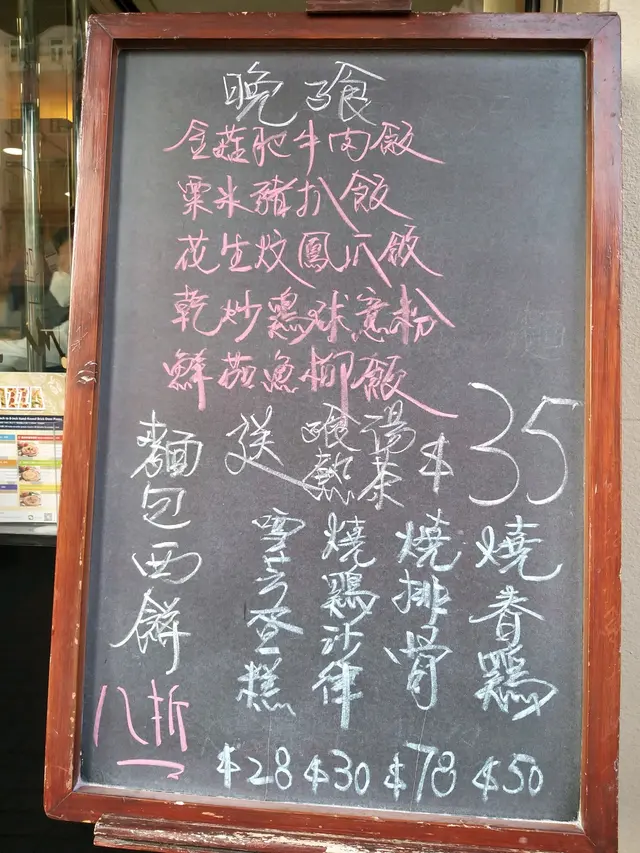 晚飡
金菇肥牛肉飯
粟米豬扒飯
花生炆鳳爪飯
乾炒鷄球意粉
鮮茄魚柳飯
送 飡湯 熱茶 $35
麵包西餅
八折
雪芳蛋糕
$28
燒鷄沙律
$30
燒排骨
$78
燒春鷄
$50